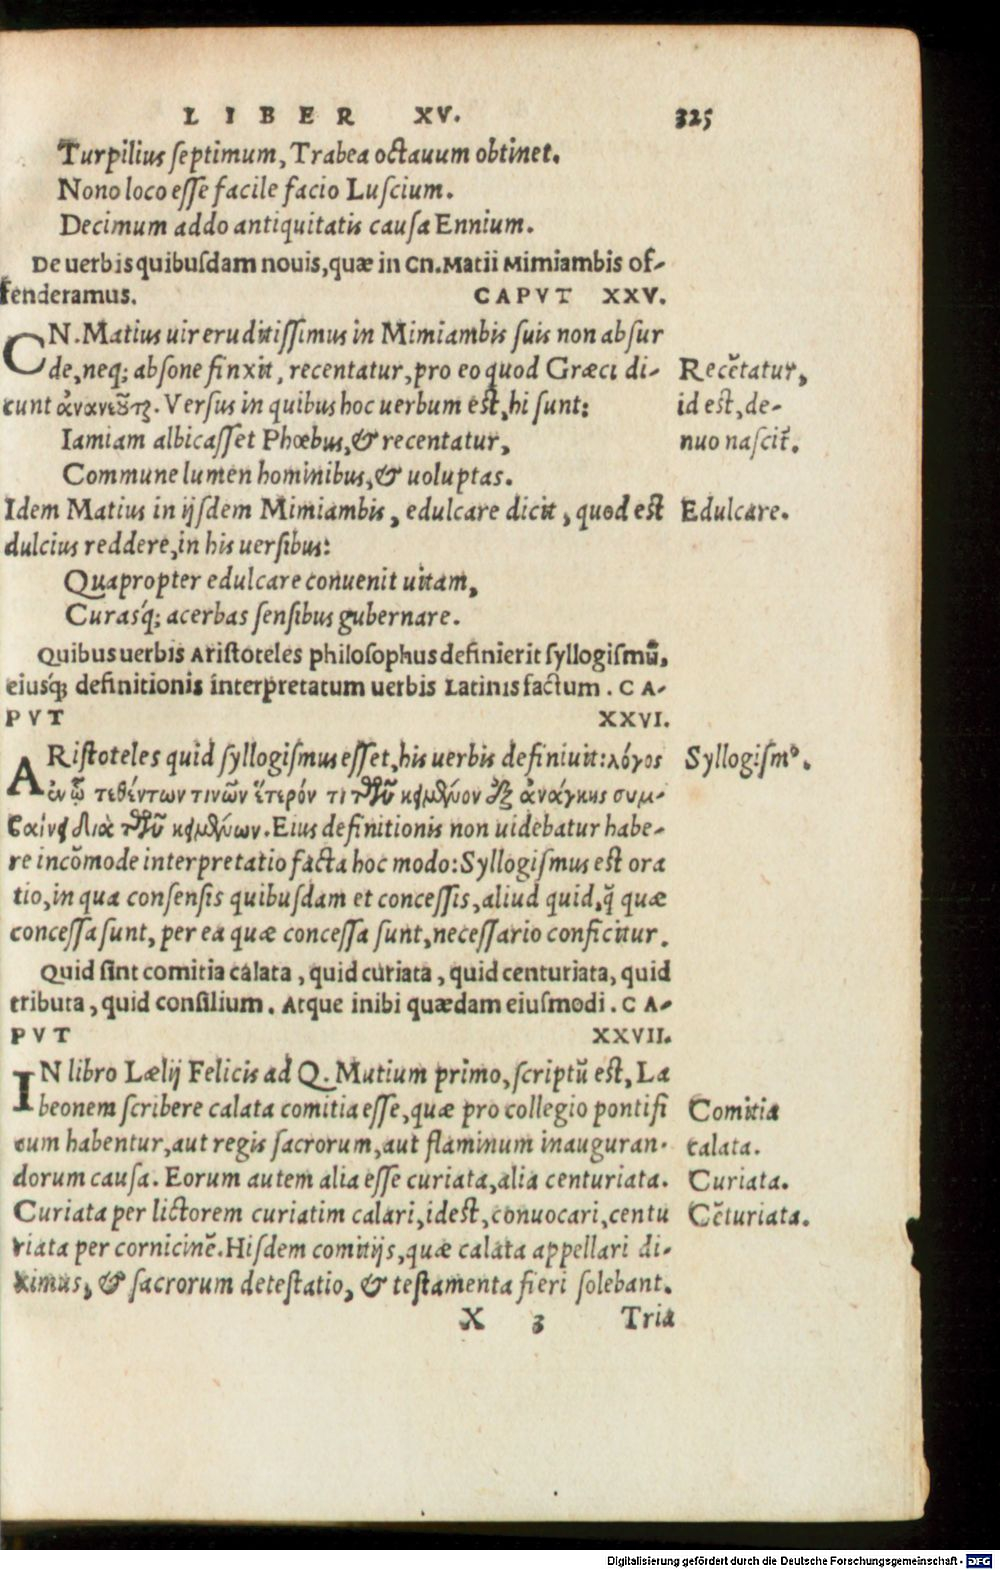 LIBER XV. 325
Turpilius ſeptimum, Trabea octauum obtinet.
Nono loco eſſe facile facio Luſcium.
Decimum addo antiquitatis cauſa Ennium.
De uerbis quibuſdam nouis, quæ in Cn. Matii Mimiambis of-
fenderamus. CAPVT XXV.
CN. Matius uir eruditiſſimus in Mimiambis ſuis non abſur
de, neq; abſone finxit, recentatur, pro eo quod Græci di- Recẽtatur,
cunt ἀνανεοῦται. Verſus in quibus hoc uerbum eſt, hi ſunt: id eſt, de-
Iamiam albicaſſet Phœbus, & recentatur, nuo naſcit̃.
Commune lumen hominibus, & uoluptas.
Idem Matius in ijſdem Mimiambis, edulcare dicit, quod eſt Edulcare.
dulcius reddere, in his uerſibus:
Quapropter edulcare conuenit uitam,
Curasq́; acerbas ſenſibus gubernare.
Quibus uerbis Ariſtoteles philoſophus definierit ſyllogiſmũ,
eiusq́; definitionis interpretatum uerbis Latinis factum. CA-
PVT XXVI.
ARiſtoteles quid ſyllogiſmus eſſet, his uerbis definiuit: λόγος Syllogiſmꝰ.
ἐν ᾧ τεθέντων τινῶν ἕτερόν τι τῶν κειμένων ἐξ ἀνάγκης συμ-
βαίνει διὰ τῶν κειμένων. Eius definitionis non uidebatur habe-
re incõmode interpretatio facta hoc modo: Syllogiſmus eſt ora
tio, in qua conſenſis quibuſdam et conceſſis, aliud quid, q̃ quæ
conceſſa ſunt, per ea quæ conceſſa ſunt, neceſſario conficitur.
Quid ſint comitia calata, quid curiata, quid centuriata, quid
tributa, quid conſilium. Atque inibi quædam eiuſmodi. CA-
PVT XXVII.
IN libro Lælij Felicis ad Q. Mutium primo, ſcriptũ eſt, La
beonem ſcribere calata comitia eſſe, quæ pro collegio pontifi Comitia
cum habentur, aut regis ſacrorum, aut flaminum inauguran- calata.
dorum cauſa. Eorum autem alia eſſe curiata, alia centuriata. Curiata.
Curiata per lictorem curiatim calari, ideſt, conuocari, centu Cẽturiata.
riata per cornicinẽ. Hiſdem comitijs, quæ calata appellari di-
ximus, & ſacrorum deteſtatio, & teſtamenta fieri ſolebant.
X 3 Tria
Digitalisierung gefördert durch die Deutsche Forschungsgemeinschaft - DFG